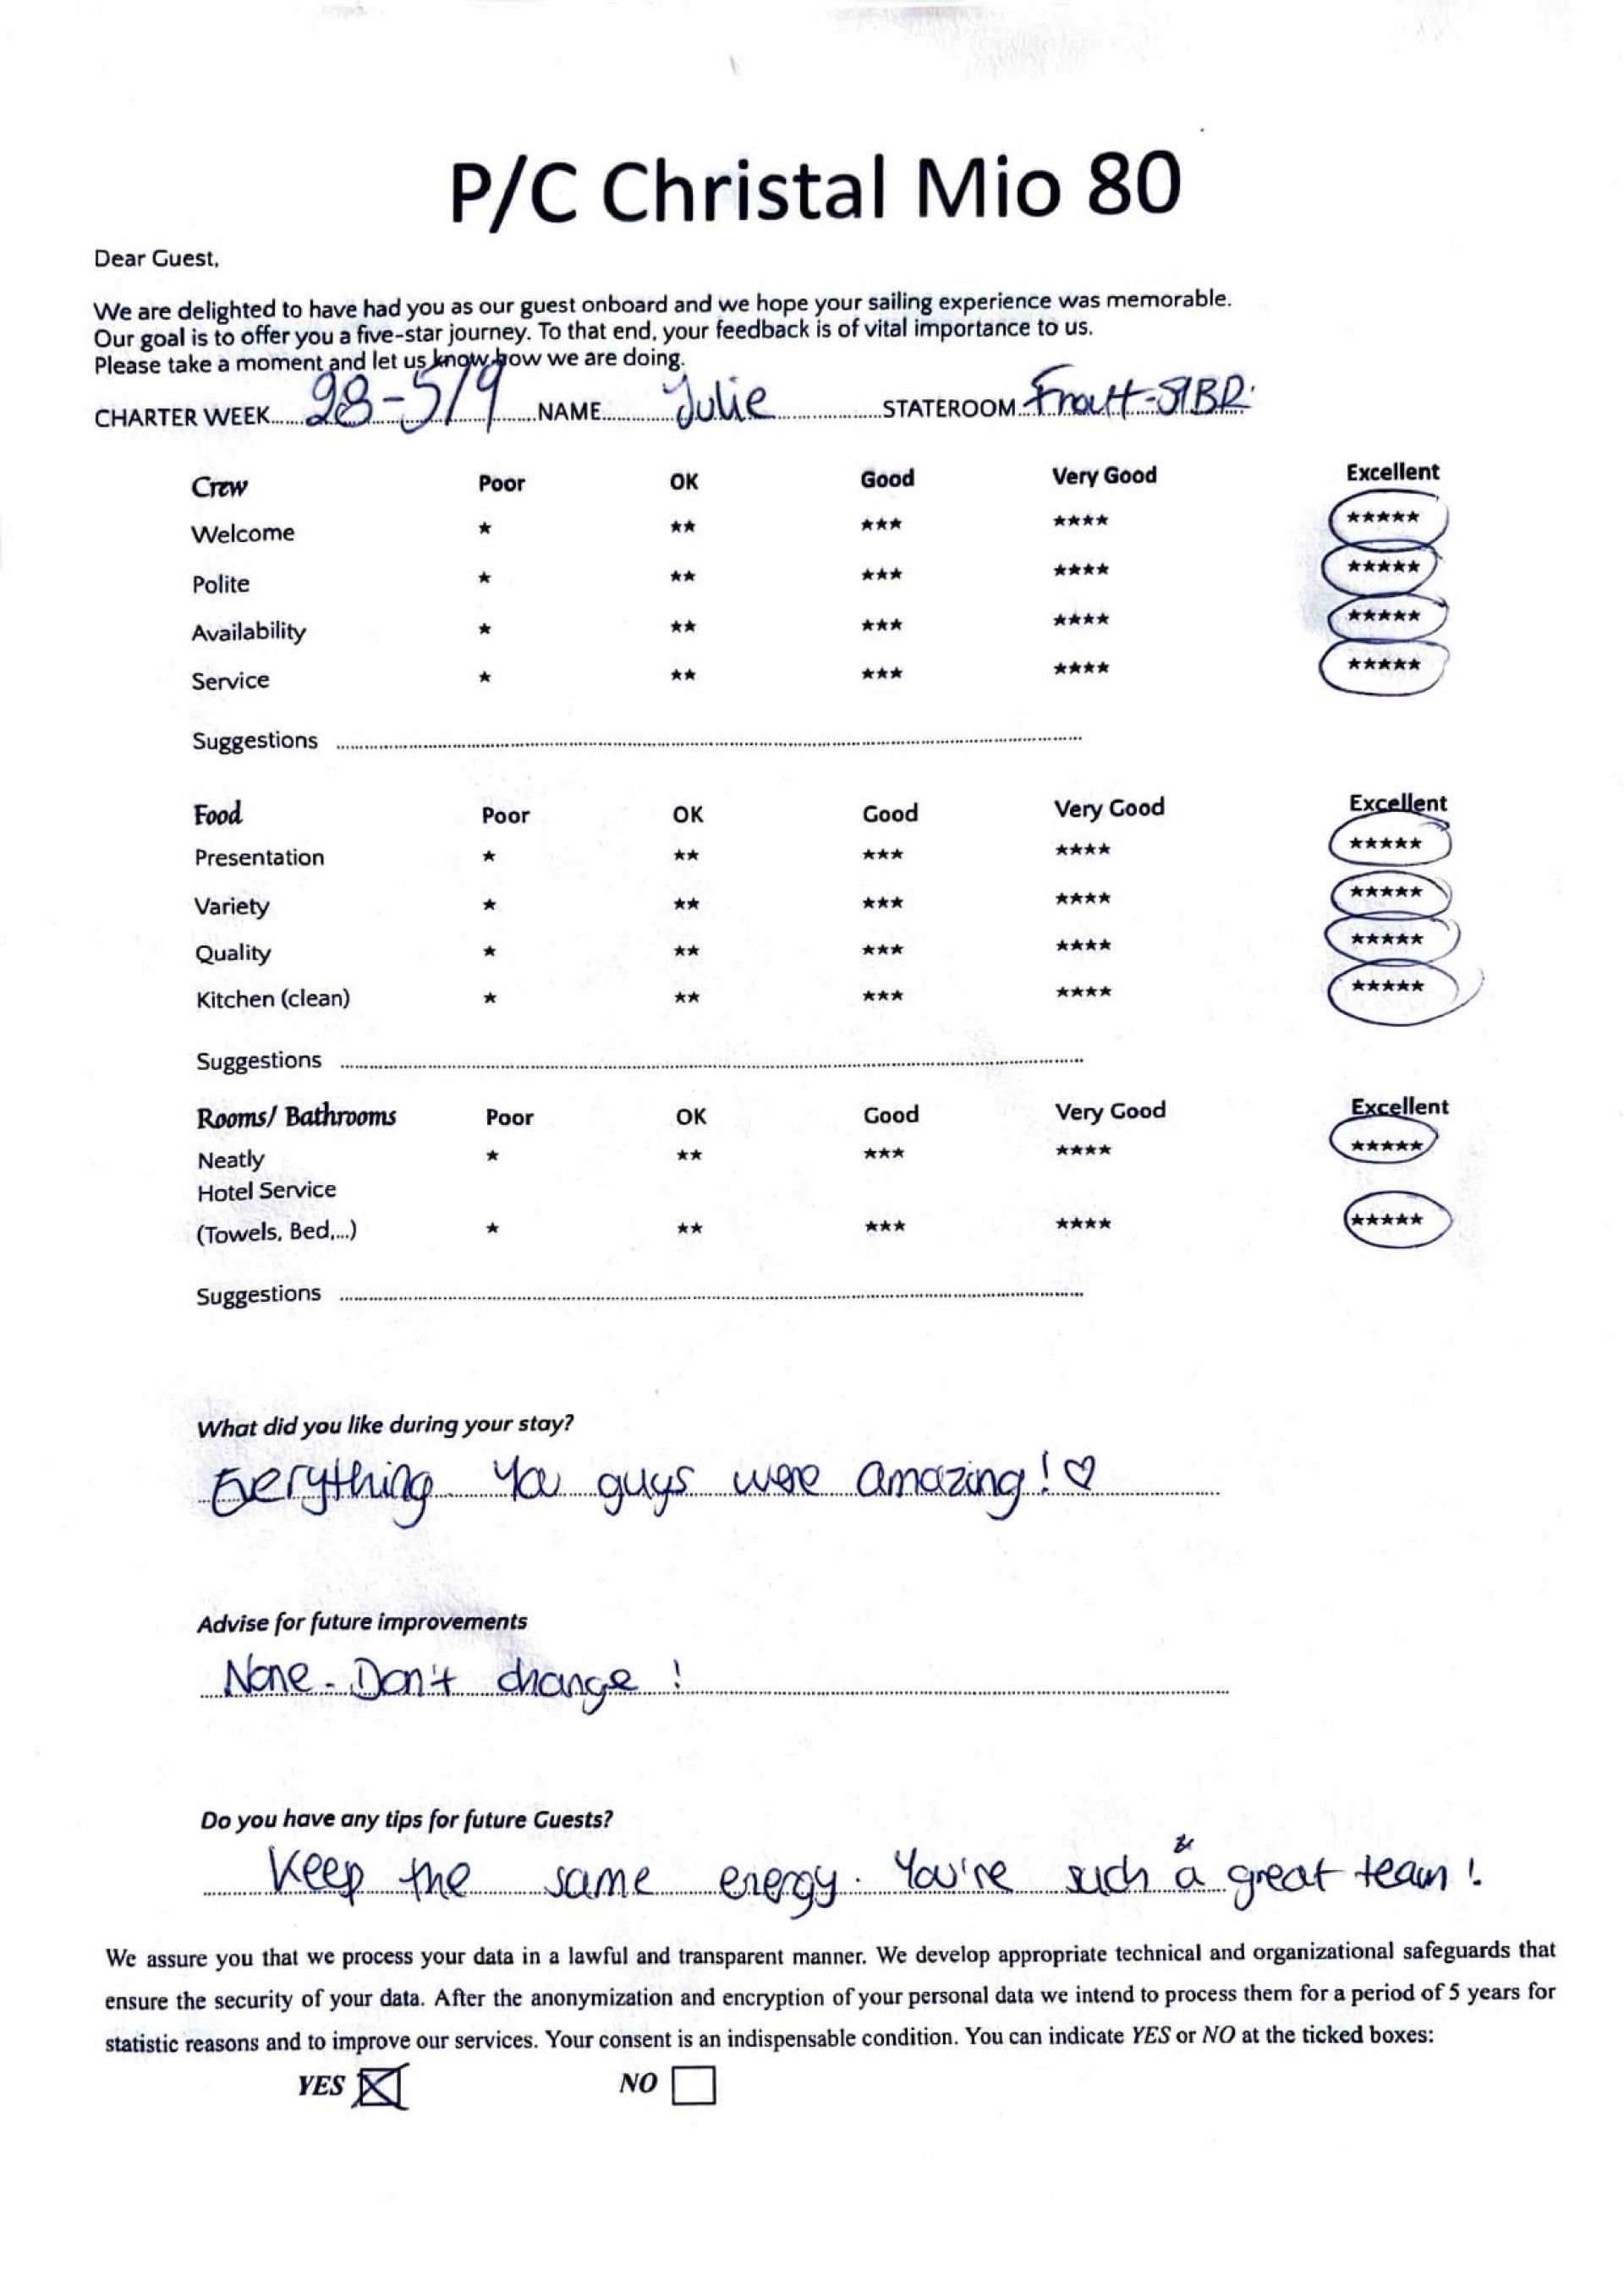 P/C Christal Mio 80
Dear Guest,
We are delighted to have had you as our guest onboard and we hope your sailing experience was memorable.
Our goal is to offer you a five-star journey. To that end, your feedback is of vital importance to us.
Please take a moment and let us know how we are doing.
CHARTER WEEK 28-5/9 NAME Julie STATEROOM STBR.
Crew Poor OK Good Very Good Excellent
Welcome ★ ★★ ★★★ ★★★★ ★★★★★
Polite ★ ★★ ★★★ ★★★★ ★★★★★
Availability ★ ★★ ★★★ ★★★★ ★★★★★
Service ★ ★★ ★★★ ★★★★ ★★★★★
Suggestions
Food Poor OK Good Very Good Excellent
Presentation ★ ★★ ★★★ ★★★★ ★★★★★
Variety ★ ★★ ★★★ ★★★★ ★★★★★
Quality ★ ★★ ★★★ ★★★★ ★★★★★
Kitchen (clean) ★ ★★ ★★★ ★★★★ ★★★★★
Suggestions
Rooms/ Bathrooms Poor OK Good Very Good Excellent
Neatly ★ ★★ ★★★ ★★★★ ★★★★★
Hotel Service
(Towels, Bed,...) ★ ★★ ★★★ ★★★★ ★★★★★
Suggestions
What did you like during your stay?
Everything You guys were amazing! ♡
Advise for future improvements
None - Don't change !
Do you have any tips for future Guests?
Keep the same energy. You're such a great team !
We assure you that we process your data in a lawful and transparent manner. We develop appropriate technical and organizational safeguards that
ensure the security of your data. After the anonymization and encryption of your personal data we intend to process them for a period of 5 years for
statistic reasons and to improve our services. Your consent is an indispensable condition. You can indicate YES or NO at the ticked boxes:
YES ☒ NO ☐